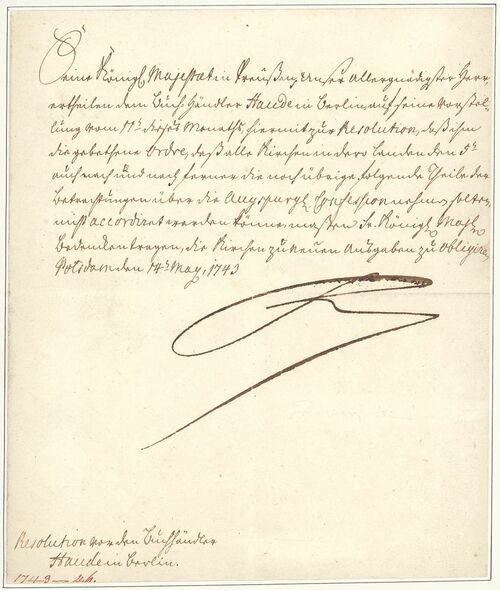 Seine Königl. Majestæt in Preußen, Unser Allergnädigster Herr,
ertheilen dem Buch-Händler Haude in Berlin, auf seine Vorstel-
lung vom 11t. dieses Monaths, hiermit zur Resolution, daß ihm
die gebethene Ordre, daß alle Kirchen in dero Landen den 5t.
auch nach und nach ferner die noch übrige folgende Theile der
Betrachtungen über die Augspurgl. Confession nehmen solten,
nicht accordiret werden könne, maßen Sr. Königl. Majt.
Bedenken tragen, die Kirchen zu neuen Ausgaben zu obligiren.
Potsdam den 14t. May, 1743
Resolution vor den Buchhändler
Haude in Berlin.
1743